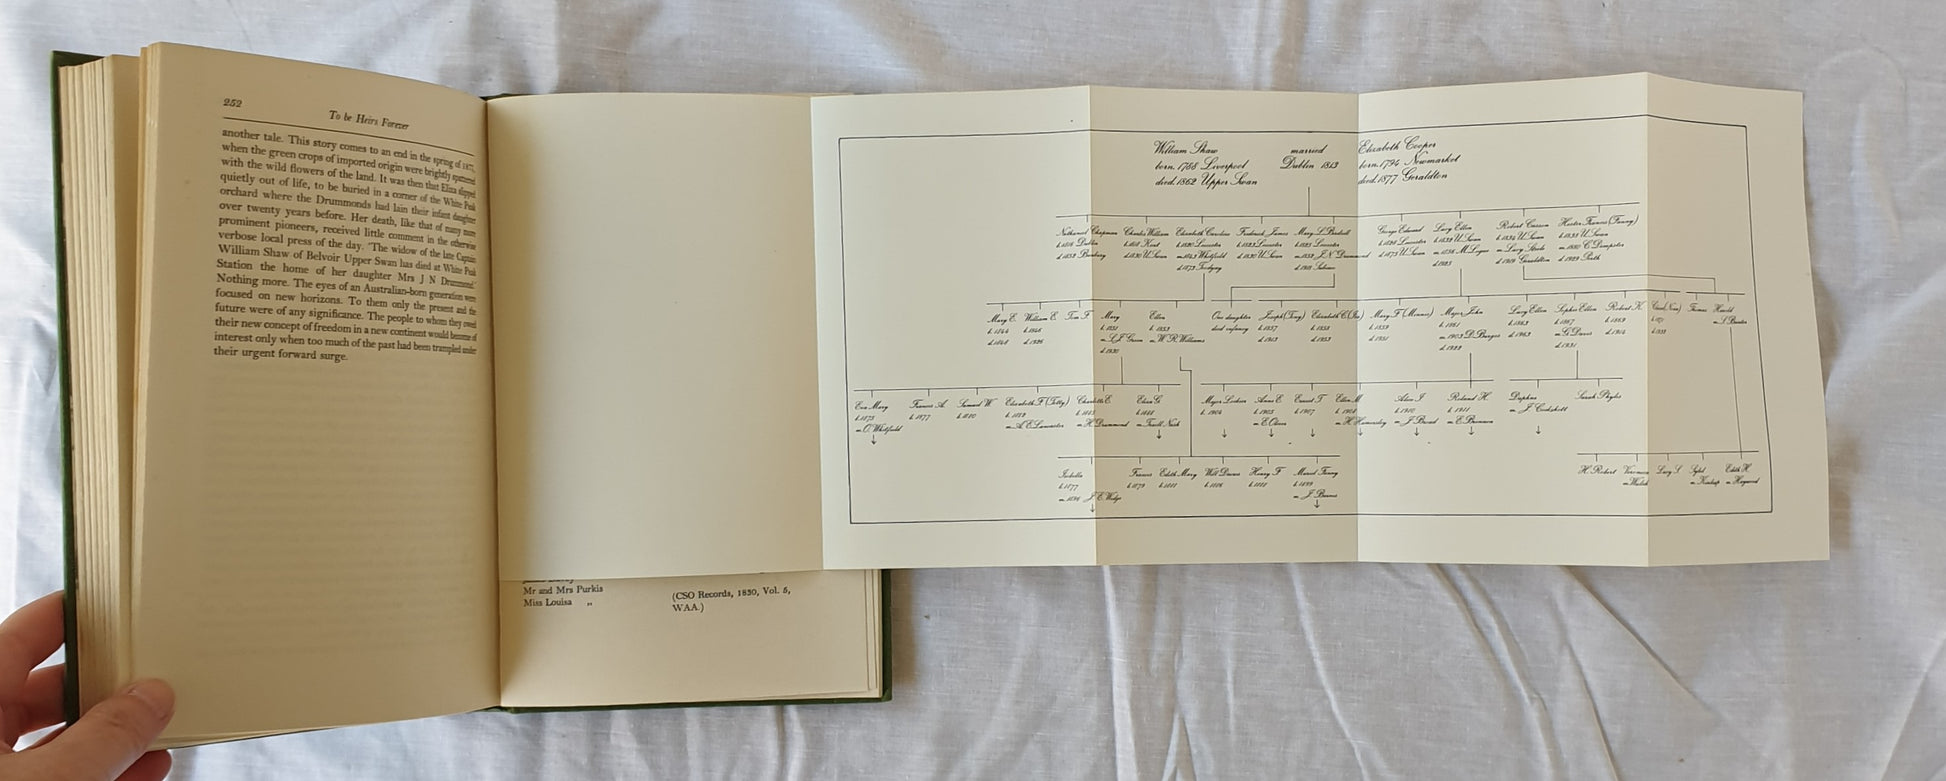 252
To be Heirs Forever
another tale. This story comes to an end in the spring of 1877,
when the green crops of imported origin were brightly spattered
with the wild flowers of the land. It was then that Eliza slipped
quietly out of life, to be buried in a corner of the White Peak
orchard where the Drummonds had lain their infant daughter
over twenty years before. Her death, like that of many more
prominent pioneers, received little comment in the otherwise
verbose local press of the day. 'The widow of the late Captain
William Shaw of Belvoir Upper Swan has died at White Peak
Station the home of her daughter Mrs J N Drummond.'
Nothing more. The eyes of an Australian-born generation were
focused on new horizons. To them only the present and the
future were of any significance. The people to whom they owed
their new concept of freedom in a new continent would become of
interest only when too much of the past had been trampled under
their urgent forward surge.
Mr and Mrs Purkis
Miss Louisa „
(CSO Records, 1830, Vol. 5,
WAA.)
William Shaw married Elizabeth Cooper
born 1788 Liverpool Dublin 1813 born 1794 Newmarket
died 1862 Upper Swan died 1877 Geraldton
Nathaniel Chapman Charles William Elizabeth Caroline Frederick James Mary L George Edward Lucy Ellen Robert Casson Hester Frances (Fanny)
Dublin Kent Leicester Leicester Leicester Leicester U. Swan U. Swan U. Swan
d. 1853 Bunbury d. 1830 U. Swan Whitfield d. 1830 U. Swan J. N. Drummond d. 1875 U. Swan Lucy m. 1880 C. Dempster
d. 1873 Toodyay d. 1929 Perth
Mary E. William E. Tom F. Mary Ellen One daughter Mary F. (Minnie) Major John Lucy Ellen Sophia Ellen Robert K. Thomas Harold
b. 1844 b. 1846 b. 1851 b. 1853 died infancy b. 1857 b. 1858 b. 1859 b. 1861 b. 1863 b. 1867 b. 1869
d. 1848 d. 1926 m. W. R. Williams d. 1943 d. 1953 d. 1951 m. 1903 D. Burges d. 1963 d. 1914
d. 1930 d. 1931
Eva Mary Frances A. Samuel W. Elizabeth F. (Totty) Charlotte E. Eliza G. Anne E. Ernest T. Ellen M. Alan J. Roland H. Daphne Sarah Phyles
b. 1875 b. 1877 b. 1880 b. 1882 b. 1904 b. 1905 b. 1907 b. 1908 b. 1910 b. 1911 m. J. Cockshott
m. O. Whitfield m. A. E. Lancaster m. H. Drummond m. E. Oliver m. H. Hamersley m. J. Broad
Isabella Frances Edith Mary Henry F. Muriel Fanny H. Robert Lucy S. Sybil Edith H.
b. 1877 b. 1879 b. 1886 b. 1888 b. 1899 m. Hayward
m. 1896 J. E. Wedge m. J. Barnes